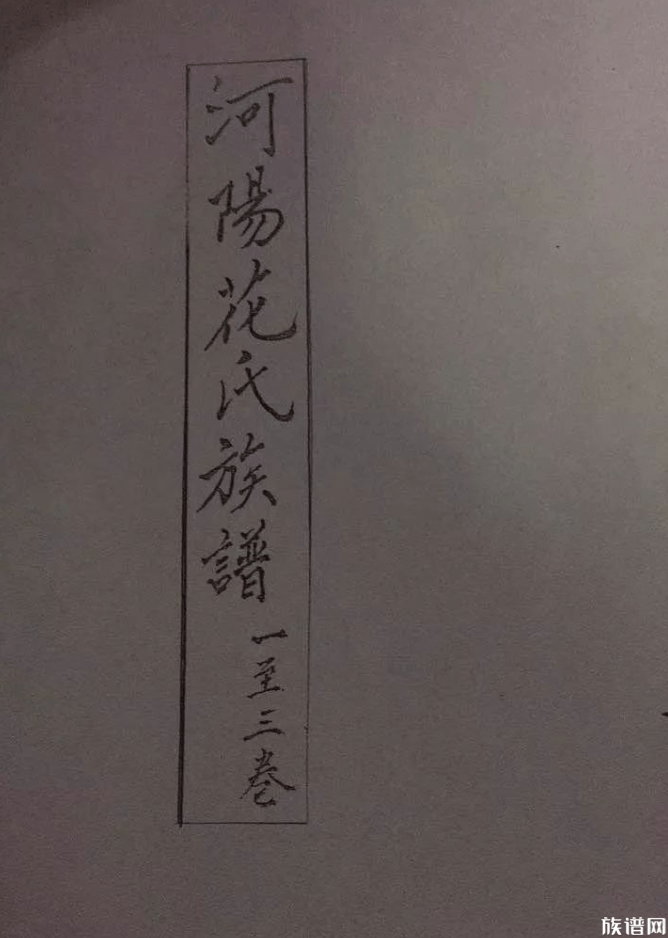 河陽花氏族譜
一至三卷
族谱网